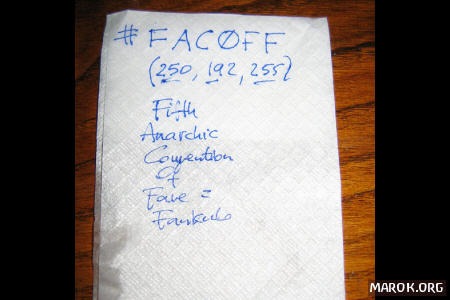 #FACØFF
(250, 192, 255)
Fifth
Anarchic
Convention
Of
Fave =
MAROK.ORG